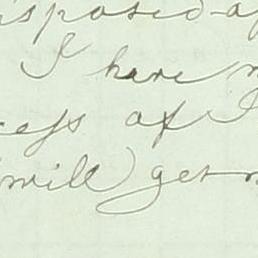 isposed of
I have n
cess of I
(will) get n